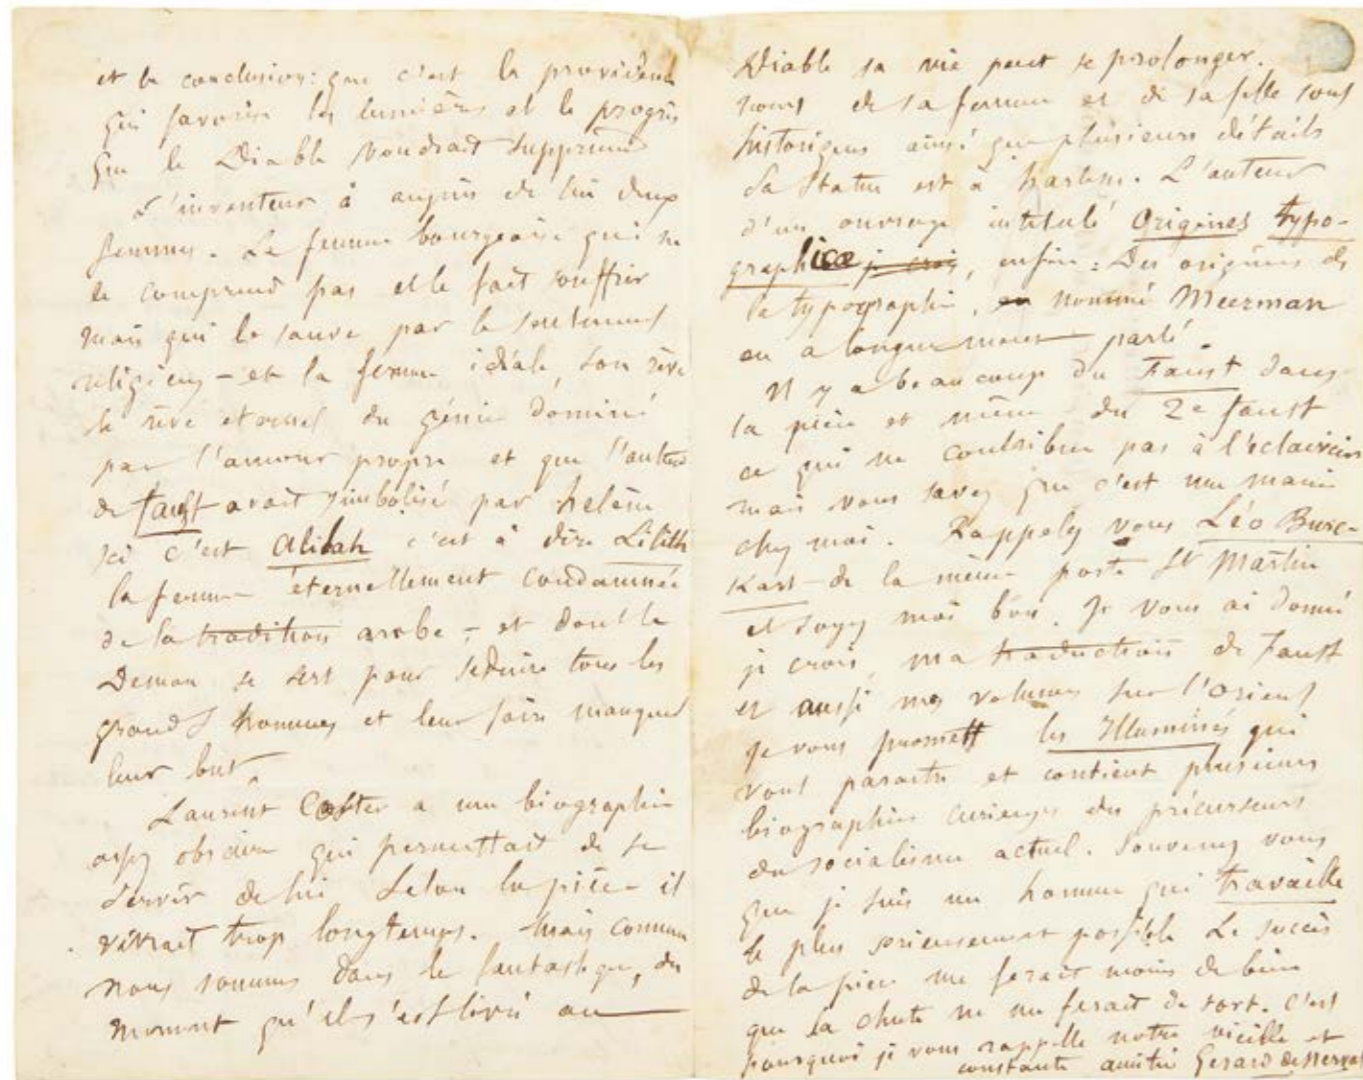 et la conclusion : que c'est la providence
qui favorise les lumières et le progrès
que le Diable voudrait supprimer
L'inventeur à auprès de lui deux
femmes. La femme bourgeoise qui ne
le comprend pas et le fait souffrir
mais qui le sauve par le sentiment
religieux – et la femme idéale, son rêve
le rêve eternel du génie dominé
par l'amour propre et que l'auteur
de Faust avait simbolisé par helène
Ici c'est Alilah c'est à dire Lilith
la femme éternellement condamnée
de la tradition arabe – et dont le
Demon se sert pour séduire tous les
grands hommes et leur faire manquer
leur but.
Laurent Coster a une biographie
assez obscure qui permettait de se
servir de lui Selon la pièce il
vivrait trop longtemps. Mais comme
nous sommes dans le fantastique, du
moment qu'il s'est livré au
Diable sa vie peut se prolonger.
noms de sa femme et de sa fille sont
historiques ainsi que plusieurs détails
Sa statue est à harlem. L'auteur
d'un ouvrage intitulé Origines typo-
graphicæ je crois, enfin : Des origines de
la typographie, nommé Meerman
en a longuement parlé.
Il y a beaucoup du Faust dans
la pièce et même du 2e faust
ce qui ne contribue pas à l'éclaircir
mais vous savez que c'est une manie
chez moi. Rappelez vous Léo Burc-
kart de la même porte St Martin
et soyez moi bon. Je vous ai donné
je crois, ma traduction de Faust
et aussi mes volumes sur l'Orient
je vous promets les Illuminés qui
vont paraître et contient plusieurs
biographies curieuses des précurseurs
du socialisme actuel. Souvenez vous
que je suis un homme qui travaille
le plus sérieusement possible Le succès
de la pièce me ferait moins de bien
que la chute ne me ferait de tort. C'est
pourquoi je vous rappelle notre vieille et
constante amitié Gerard de Nerval